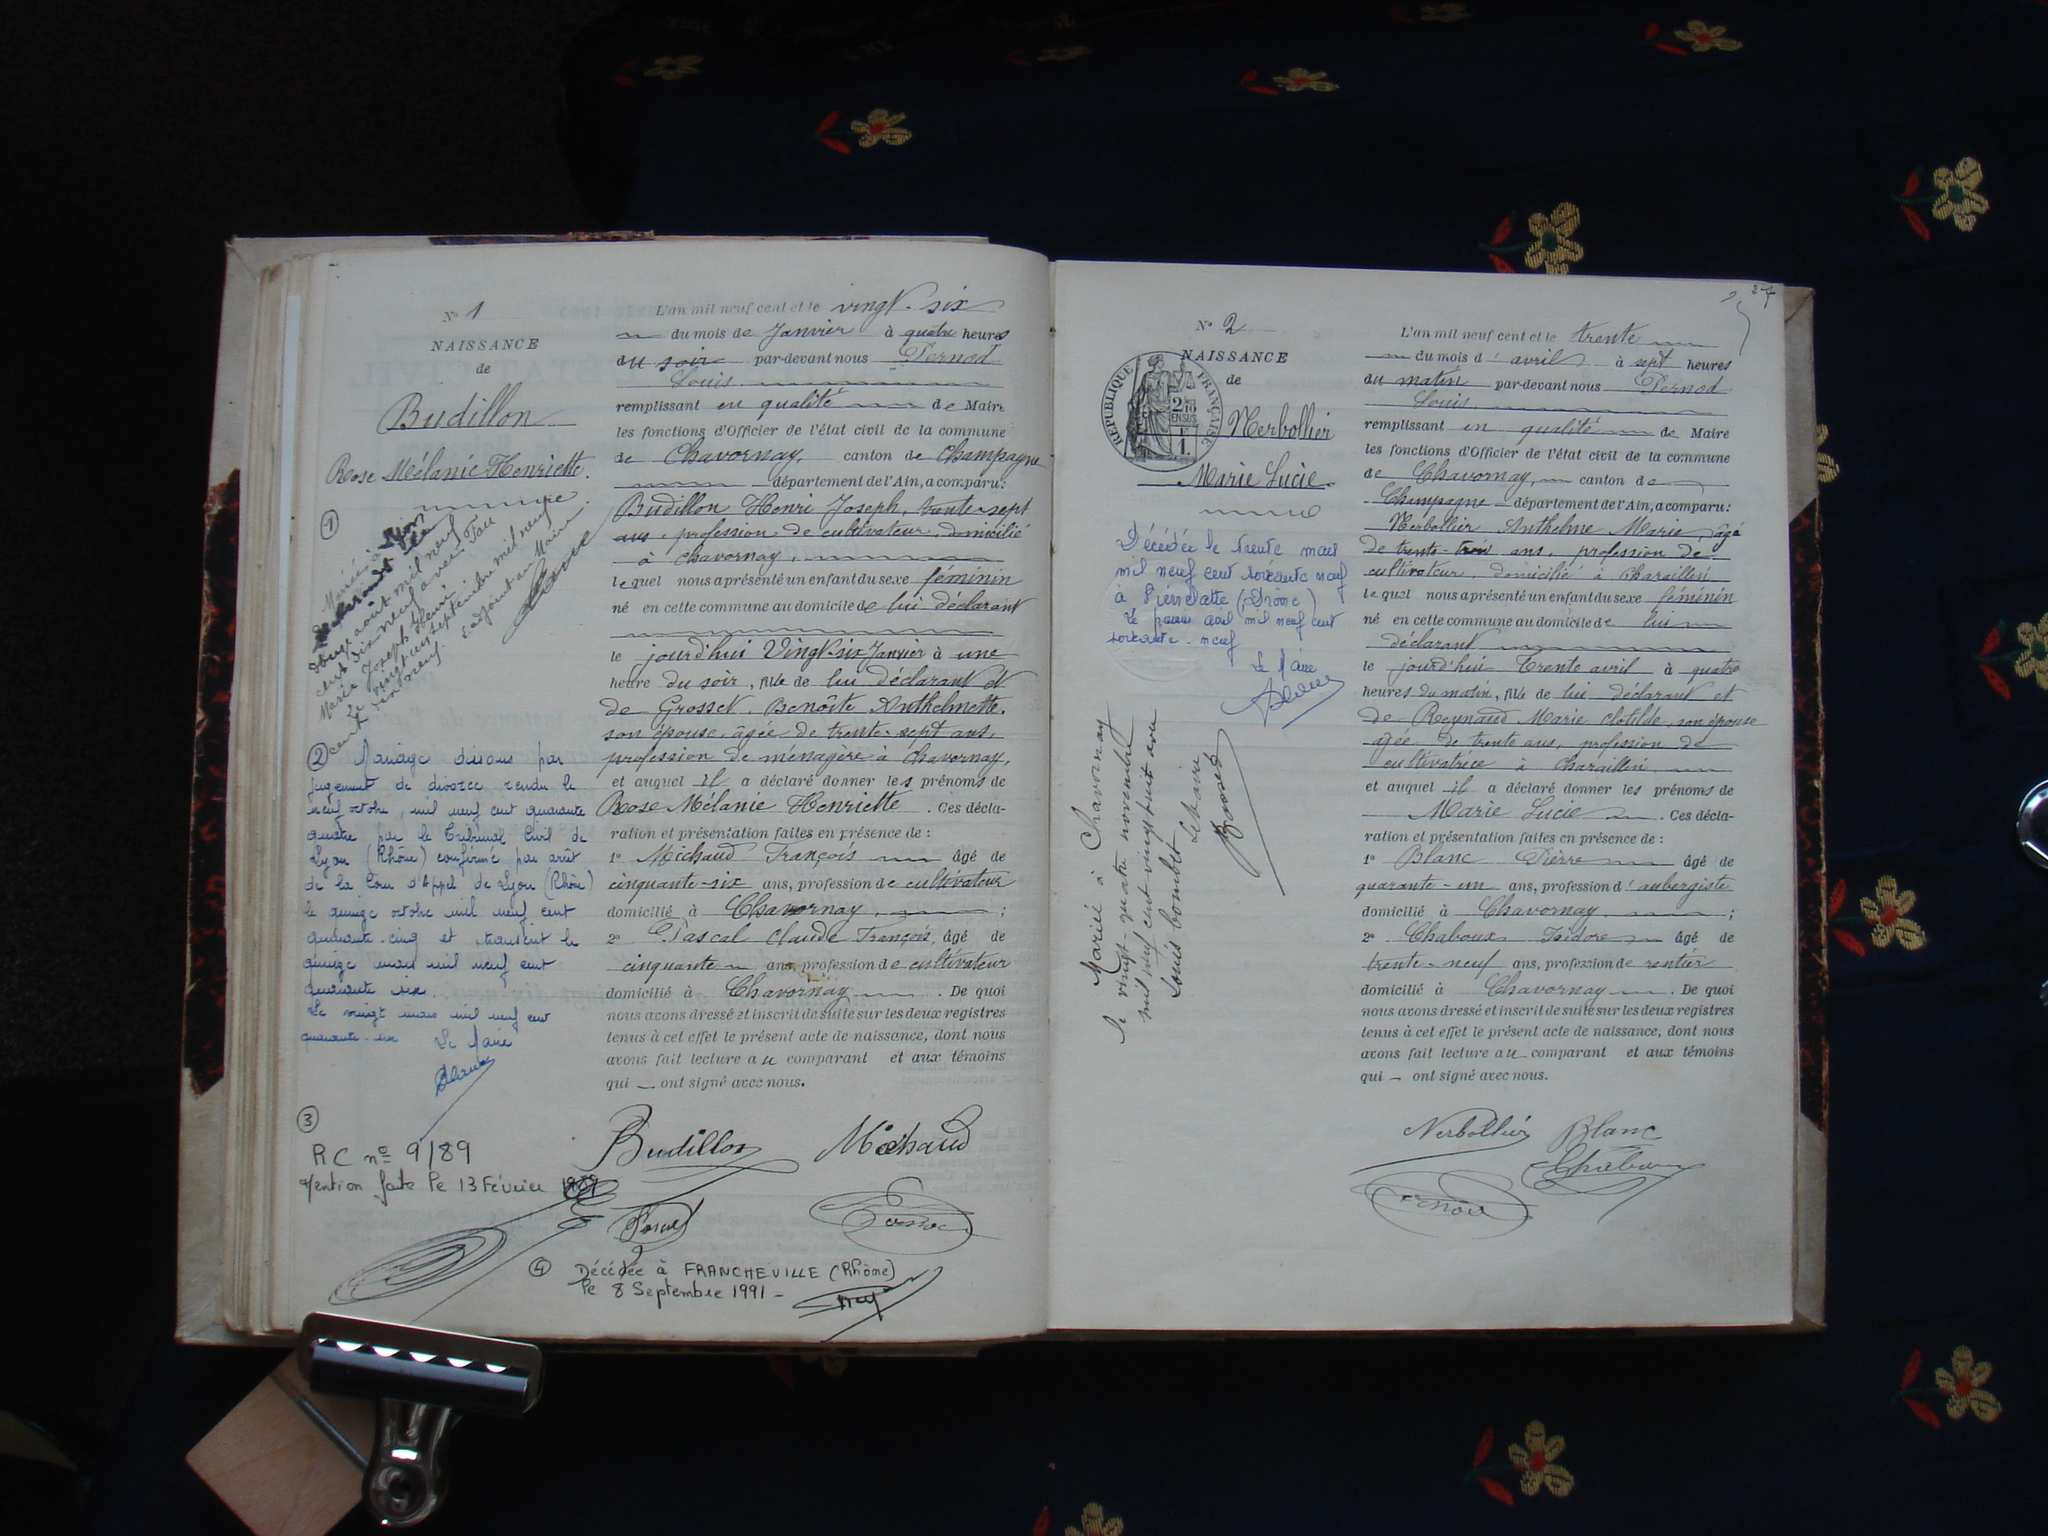 N° 1
NAISSANCE
de
Budillon
Rose Mélanie Henriette.
1
Mariée à Lyon
douze août mil neuf
cent dix neuf avec
Marie Joseph Henri
Le vingt un septembre mil neuf
cent dix neuf. L'adjoint au Maire
2 Mariage dissous par
jugement de divorce rendu le
neuf octobre, mil neuf cent quarante
quatre par le Tribunal Civil de
Lyon (Rhône) confirmé par arrêt
de la Cour d'Appel de Lyon (Rhône)
le quinze octobre mil neuf cent
quarante-cinq et transcrit le
quinze mars mil neuf cent
quarante six.
Le vingt mars mil neuf cent
quarante-six Le Maire
3
RC n° 9/89
Mention faite le 13 Février 1989
L'an mil neuf cent et le vingt-six
du mois de Janvier à quatre heures
du soir par-devant nous Pernod
Louis
remplissant en qualité de Maire
les fonctions d'Officier de l'état civil de la commune
de Chavornay, canton de Champagne
département de l'Ain, a comparu:
Budillon Henri Joseph, trente-sept
ans, profession de cultivateur, domicilié
à Chavornay,
lequel nous a présenté un enfant du sexe féminin
né en cette commune au domicile de lui déclarant
le jourd'hui Vingt six Janvier à une
heure du soir, fille de lui déclarant et
de Grosset Benoîte Anthelmette,
son épouse, âgée de trente-sept ans,
profession de ménagère à Chavornay,
et auquel il a déclaré donner les prénoms de
Rose Mélanie Henriette. Ces décla-
ration et présentation faites en présence de:
1° Michaud François âgé de
cinquante-six ans, profession de cultivateur
domicilié à Chavornay,;
2° Pascal Claude François, âgé de
cinquante ans, profession de cultivateur
domicilié à Chavornay. De quoi
nous avons dressé et inscrit de suite sur les deux registres
tenus à cet effet le présent acte de naissance, dont nous
avons fait lecture au comparant et aux témoins
qui ont signé avec nous.
Budillon Michaud
4 Décédée à FRANCHEVILLE (Rhône)
le 8 Septembre 1991
27
N° 2
NAISSANCE
de
REPUBLIQUE FRANÇAISE
2/10
EN SUS
1F
Nerbollier
Marie Lucie.
Décédée le trente mars
mil neuf cent soixante neuf
à Pierrelatte (Drôme)
Le avril mil neuf cent
soixante-neuf
Le Maire
Mariée à Chavornay
le vingt-quatre novembre
mil neuf cent vingt huit avec
Louis Bombet
Le Maire
L'an mil neuf cent et le trente
du mois d'avril à sept heures
du matin par-devant nous Pernod
Louis
remplissant en qualité de Maire
les fonctions d'Officier de l'état civil de la commune
de Chavornay, canton de
Champagne département de l'Ain, a comparu:
Nerbollier Anthelme Marie, âgé
de trente-trois ans, profession de
cultivateur, domicilié à Charaillin
lequel nous a présenté un enfant du sexe féminin
né en cette commune au domicile de lui
déclarant
le jourd'hui trente avril à quatre
heures du matin, fille de lui déclarant et
de Reynaud Marie Clotilde, son épouse
âgée de trente ans, profession de
cultivatrice à Charaillin
et auquel il a déclaré donner les prénoms de
Marie Lucie. Ces décla-
ration et présentation faites en présence de:
1° Blanc Pierre âgé de
quarante-un ans, profession d'aubergiste
domicilié à Chavornay;
2° Chaboux Isidore âgé de
trente-neuf ans, profession de rentier
domicilié à Chavornay. De quoi
nous avons dressé et inscrit de suite sur les deux registres
tenus à cet effet le présent acte de naissance, dont nous
avons fait lecture au comparant et aux témoins
qui ont signé avec nous.
Nerbollier Blanc
Chaboux